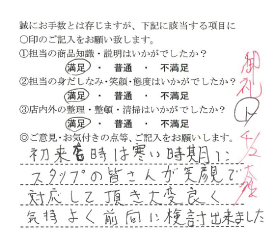 誠にお手数とは存じますが、下記に該当する項目に
○印のご記入をお願い致します。
①担当の商品知識・説明はいかがでしたか？
満足 ・ 普通 ・ 不満足
②担当の身だしなみ・笑顔・態度はいかがでしたか？
満足 ・ 普通 ・ 不満足
③店内外の整理・整頓・清掃はいかがでしたか？
満足 ・ 普通 ・ 不満足
◎ご意見・お気付きの点等、ご記入をお願いします。
初来店時は寒い時期に
スタッフの皆さんが笑顔で
対応して頂き大変良く
気持よく前向に検討出来ました
御礼